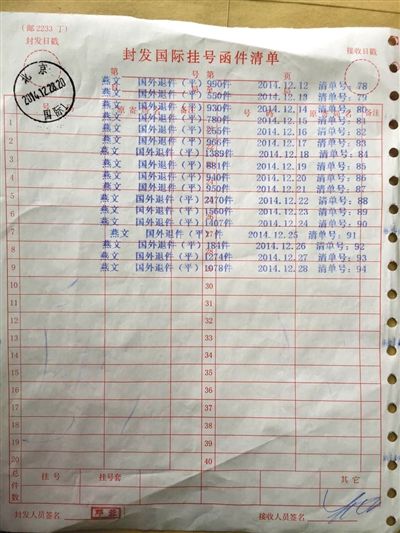 (邮2233 丁)
封发日戳
接收日戳
封发国际挂号函件清单
北京
2014.12.28.20
国际
第 号 第 页
燕文 国外退件(平) 990件 2014.12.12 清单号:78
燕文 国外退件(平) 550件 2014.12.13 清单号:79
燕文 国外退件(平) 930件 2014.12.14 清单号:80
燕文 国外退件(平) 780件 2014.12.15 清单号:81
燕文 国外退件(平) 2014.12.16 清单号:82
燕文 国外退件(平) 966件 2014.12.17 清单号:83
燕文 国外退件(平) 1389件 2014.12.18 清单号:84
燕文 国外退件(平) 881件 2014.12.19 清单号:85
燕文 国外退件(平) 940件 2014.12.20 清单号:86
燕文 国外退件(平) 950件 2014.12.21 清单号:87
燕文 国外退件(平) 2470件 2014.12.22 清单号:88
燕文 国外退件(平) 1560件 2014.12.23 清单号:89
燕文 国外退件(平) 1407件 2014.12.24 清单号:90
燕文 国外退件(平) 件 2014.12.25 清单号:91
燕文 国外退件(平) 184件 2014.12.26 清单号:92
燕文 国外退件(平) 1274件 2014.12.27 清单号:93
燕文 国外退件(平) 1078件 2014.12.28 清单号:94
1
2
3
4
5
6
7
8
9
10 30
11 31
12 32
13 33
14 34
15 35
16 36
17 37
18 38
19 39
20 40
总件数 挂号 挂号套 其它
封发人员签名
接收人员签名